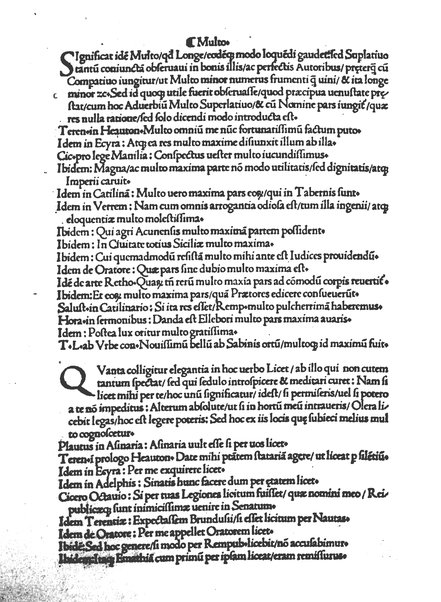 ¶ Multo.
SIgnificat idē Multo/qd̄ Longe/eodēq; modo loquēdi gaudet: sed Suplatiuo
tantū coniunctā obseruaui in bonis illis/ac perfectis Autoribus/ pręterq̄ cū
Compatiuo iungitur/ut Multo minor numerus frumenti q̄ uini/ & ita longe
minor ꝛc. Sed id quoq; utile fuerit obseruasse/quod præcipua uenustate prę
stat/cum hoc Aduerbiū Multo Superlatiuo/& cū Nomine pars iungit᷑/quæ
res nulla ratione/sed solo dicendi modo introducta est.
Teren. in Heauton. Multo omniū me nūc fortunatissimū factum puto.
Idem in Ecyra: Atq; ea res multo maxime disiunxit illum ab illa.
Cic. pro lege Manilia: Conspectus uester multo iucundissimus.
Ibidem: Magna/ac multo maxima parte nō modo utilitatis/sed dignitatis/atq;
Imperii caruit.
Idem in Catilinā: Multo uero maxima pars eoꝝ/qui in Tabernis sunt.
Idem in Verrem: Nam cum omnis arrogantia odiosa est/tum illa ingenii/ atq;
eloquentiæ multo molestissima.
Ibidem: Qui agri Acunensis multo maximā partem possident.
Ibidem: In Ciuitate totius Siciliæ multo maxima.
Ibidem: Cui quemadmodū resistā multo mihi ante est Iudices prouidendū.
Idem de Oratore: Quæ pars sine dubio multo maxima est.
Idē de arte Retho. Quaꝝ tn̄ rerū multo maxīa pars ad cōmodū corpis reuertit᷑.
Ibidem: Et eoꝝ multo maxima pars/quā Prætores edicere consueuerūt.
Salust. in Catilinario: Si ita res esset/Remp. multo pulcherrimā haberemus.
Hora. in sermonibus: Danda est Ellebori multo pars maxima auaris.
Idem: Postea lux oritur multo gratissima.
T. L. ab Vrbe con. Nouissimū bellū ab Sabinis ortū/multoq; id maximū fuit.
QVanta colligitur elegantia in hoc uerbo Licet/ ab illo qui non cutem
tantum spectat/ sed qui sedulo introspicere & meditari curet: Nam si
licet mihi per te/hoc unū significatur/ idest/ si permiseris/uel si potero
a te nō impeditus: Alterum absolute/ut si in hortū meū intraueris/ Olera li
cebit legas/hoc est legere poteris: Sed hoc ex iis locis quę subieci melius mul
to cognoscetur.
Plautus in Asinaria: Asinaria uult esse si per uos licet.
Teren. ī prologo Heauton. Date mihi ptātem statariā agere/ ut liceat p silētiū.
Idem in Ecyra: Per me exquirere licet.
Idem in Adelphis: Sinatis hunc facere dum per ętatem licet.
Cicero Octauio: Si per tuas Legiones licitum fuisset/ quæ nomini meo / Rei
publicæq; sunt inimicissimæ uenire in Senatum.
Idem Terentiæ: Expectassem Brundusii/si esset licitum per Nautas.
Idem de Oratore: Per me appellet Oratorem licet.
Ibidē: Sed hoc genere/si modo per Rempub. licebit/nō accusabimur.
cum primū per ipsam liceat/eram remissurus.